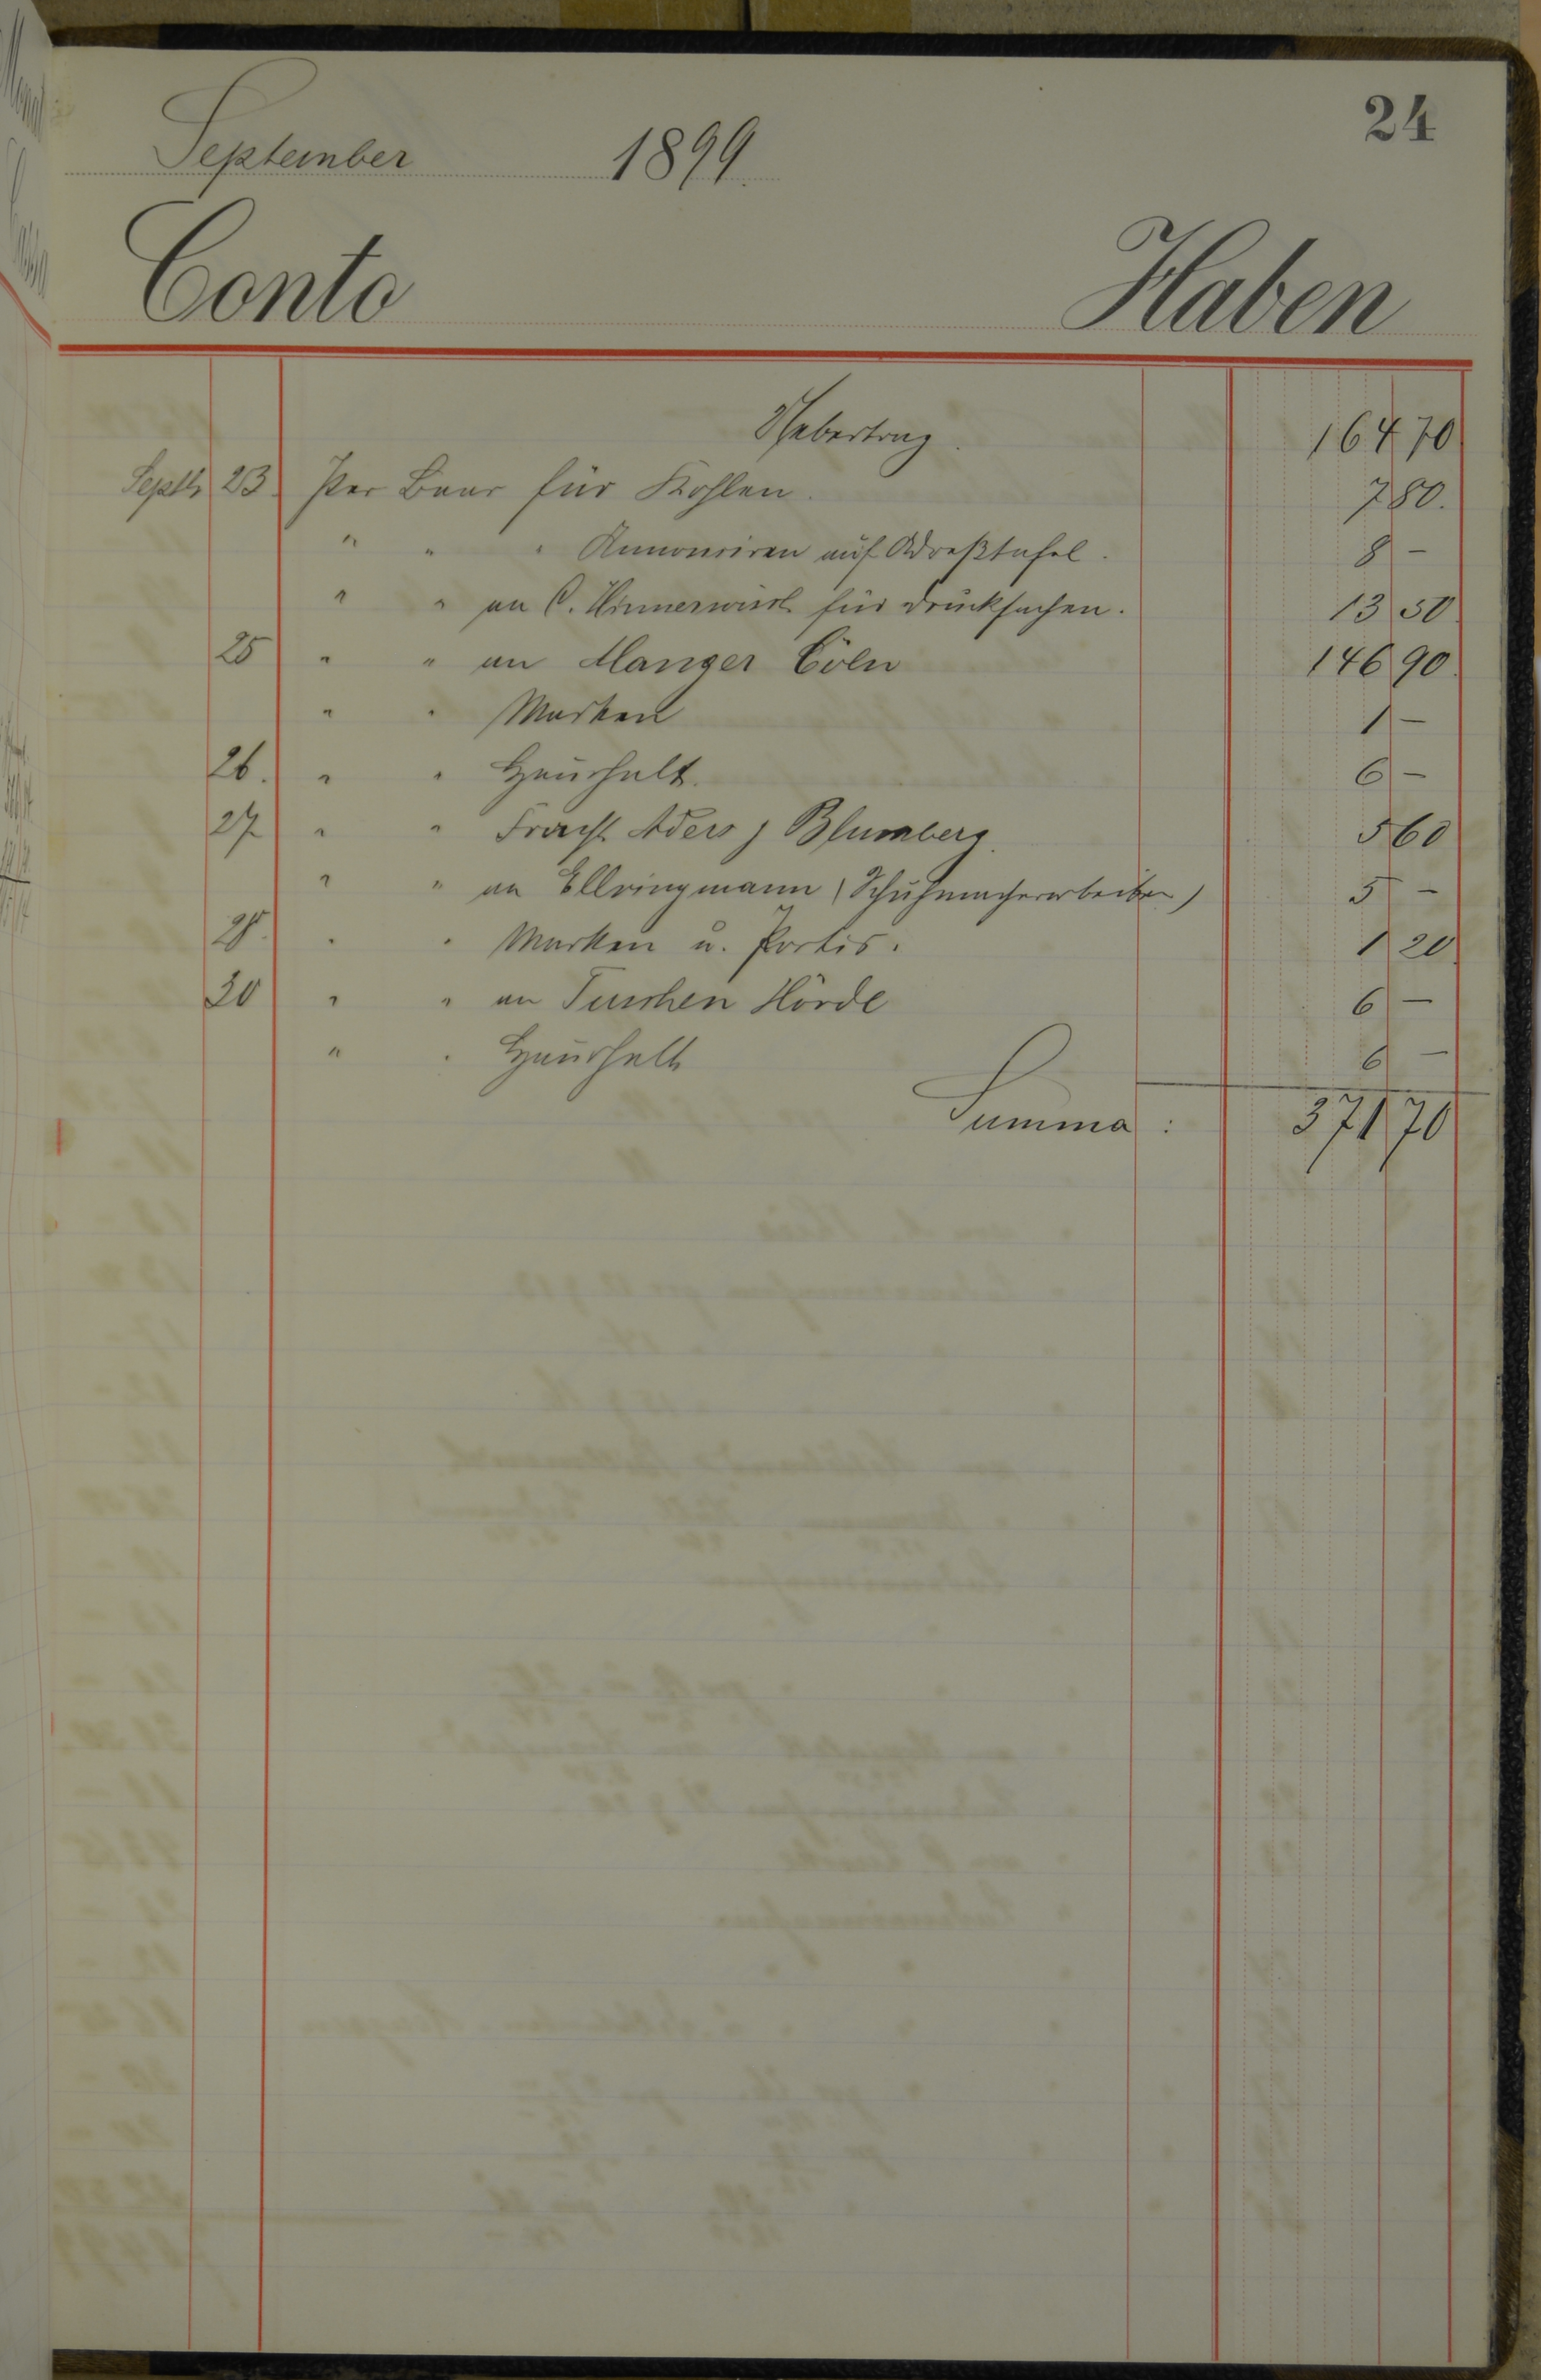 24
September 1899.
Conto Haben
Uebertrag. 164 70
Septb 23 Per Baar für Kohlen. 7 80.
" " " Annonciren auf Adreßtafel. 8 -
" " an C. Hinnerwisch für Drucksachen. 13 50
25 " " an Manger Cöln 146 90
" " Marken 1 -
26. " " Haushalt. 6 -
27 " " Fracht Aders j Blumberg. 5 60
" " an Ellringmann (Schuhmacherarbeiten) 5 -
28. " " Marken u. Portis. 1 20
30 " " an Tuschen Hörde 6 -
" " Haushalt 6 -
Summa : 371 70